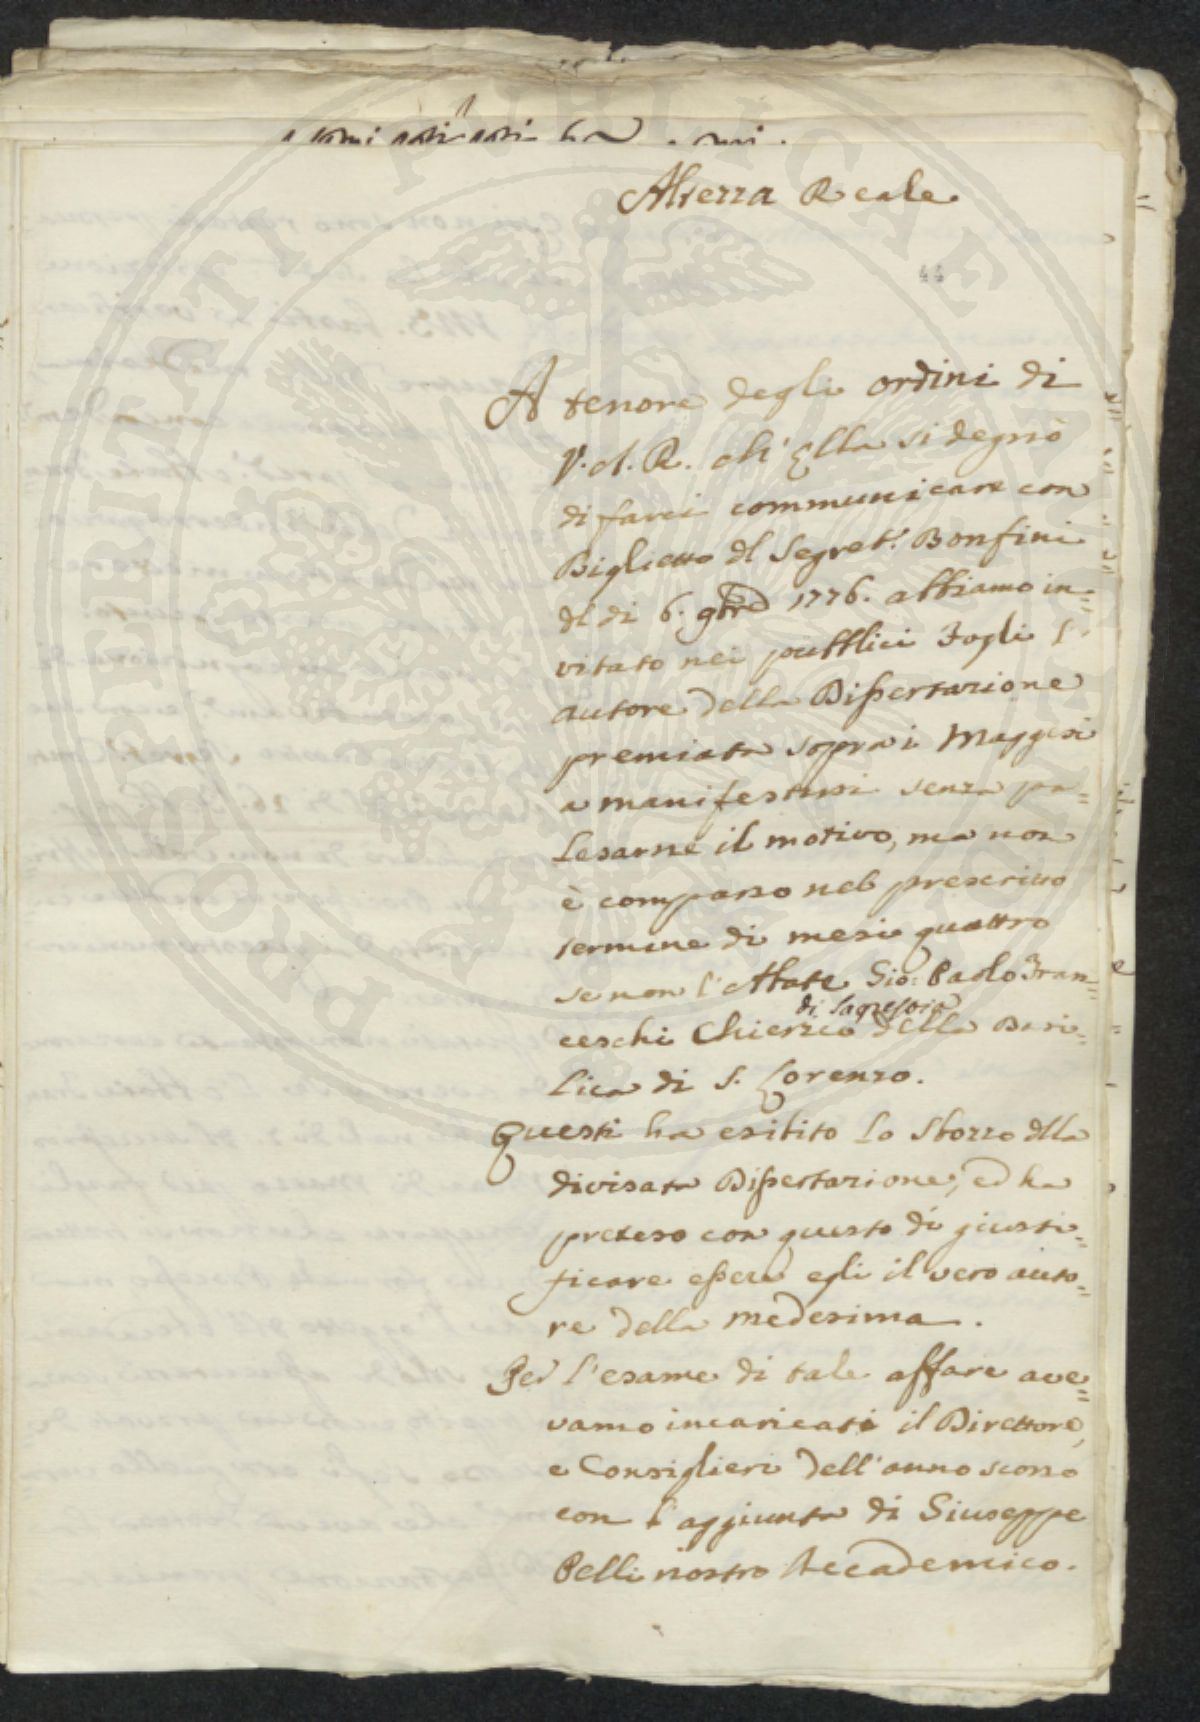 Altezza Reale
44
A tenore degli ordini di
V. A. R. ch' Ella si degnò
di farci communicare con
Biglietto dl Segret.º Bonfini
dl di 6. 9bre 1776. abbiamo in=
vitato nei pubblici Fogli l'
autore della Dissertazione
premiata sopra i Maggesi
a manifestarsi senza pa=
lesarne il motivo, ma non
è comparso nel prescritto
termine di mesi quattro
se non l'Abate Gio: Paolo Fran=
ceschi Chierico di Sagrestia della Basi=
lica di S. Lorenzo.
Questi ha esibito lo Sbozzo dlla
divisata Dissertazione, ed ha
preteso con questo di giusti=
ficare essere egli il vero auto=
re della medesima.
Per l'esame di tale affare ave=
vamo incaricati il Direttore,
e Consiglieri dell'anno scorso
con l'aggiunta di Giuseppe
Pelli nostro Accademico.
PROSPERITATI PUBLICAE AUGENDAE